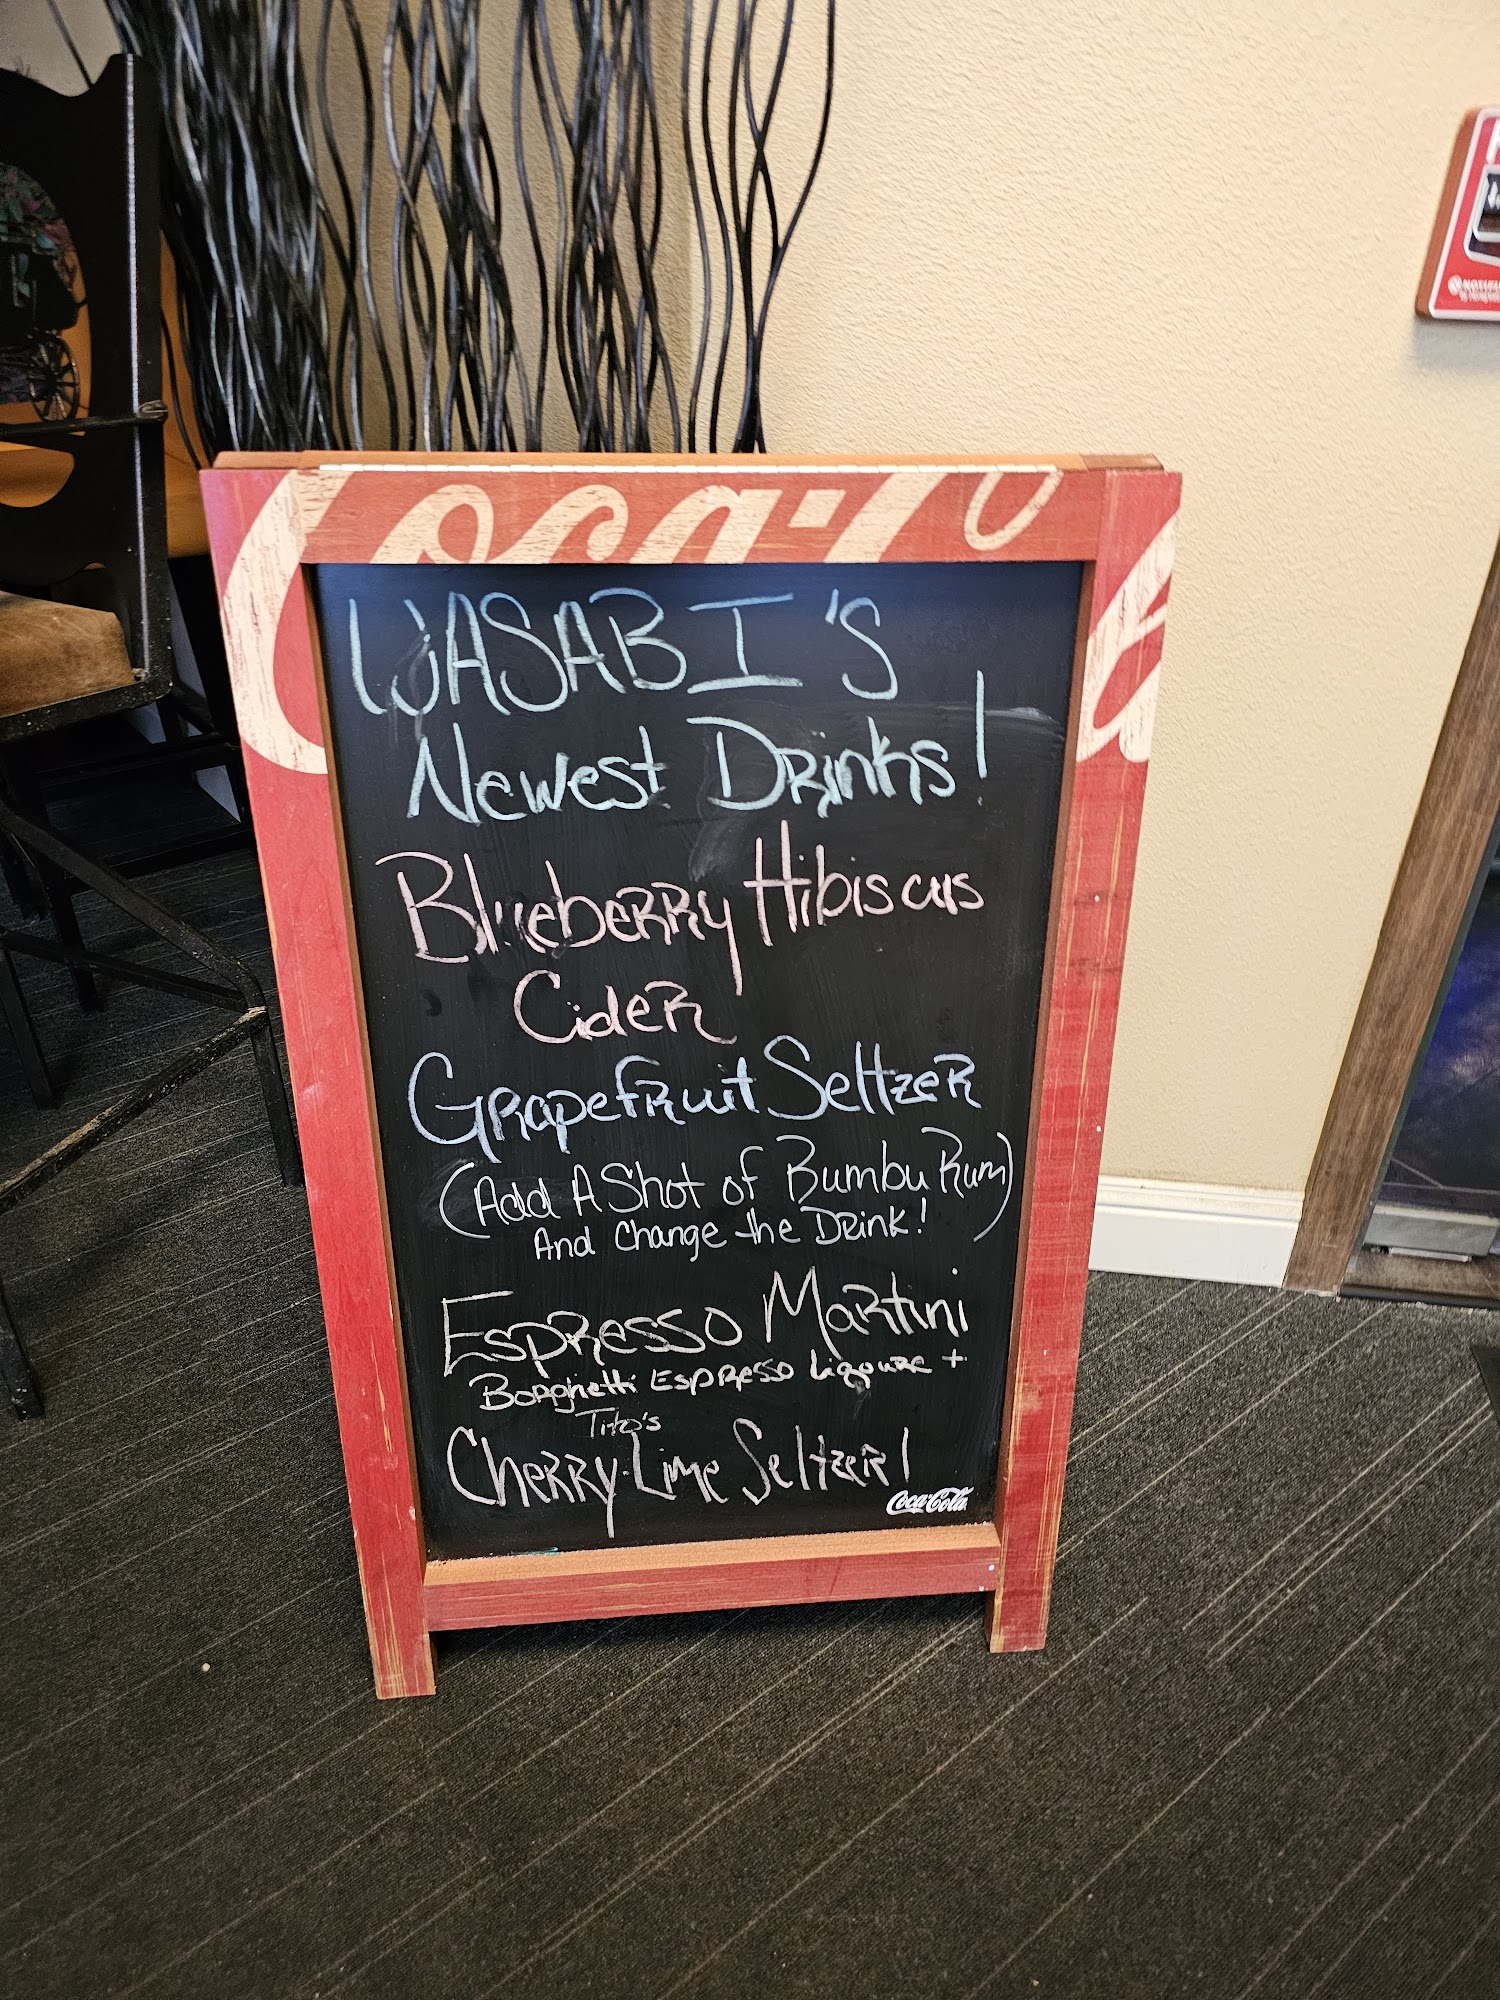 Coca-Co
WASABI'S
Newest Drinks!
Blueberry Hibiscus
Cider
Grapefruit Seltzer
(Add A Shot of Bumbu Rum)
And Change the Drink!
Espresso Martini
Borghetti Espresso Liqoure +
Tito's
Cherry-Lime Seltzer!
Coca-Cola